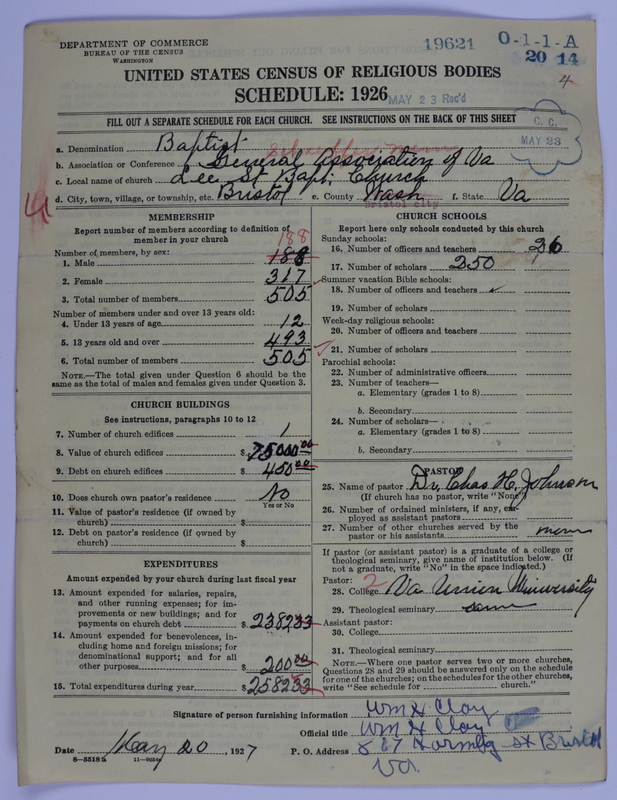 DEPARTMENT OF COMMERCE
BUREAU OF THE CENSUS
WASHINGTON
19621
O-1-1-A
20 14
4
UNITED STATES CENSUS OF RELIGIOUS BODIES
SCHEDULE: 1926
MAY 23 Rec'd
FILL OUT A SEPARATE SCHEDULE FOR EACH CHURCH. SEE INSTRUCTIONS ON THE BACK OF THIS SHEET
C. C.
MAY 23
a. Denomination Baptist
b. Association or Conference General Association of Va
c. Local name of church Lee St Bapt. Church
d. City, town, village, or township, etc. Bristol e. County Wash f. State Va
Bristol City
MEMBERSHIP
Report number of members according to definition of
member in your church
188
Number of members, by sex:
1. Male 188
2. Female 317
3. Total number of members 505
Number of members under and over 13 years old:
4. Under 13 years of age 12
5. 13 years old and over 493
6. Total number of members 505
NOTE.—The total given under Question 6 should be the
same as the total of males and females given under Question 3.
CHURCH BUILDINGS
See instructions, paragraphs 10 to 12
7. Number of church edifices 1
8. Value of church edifices $ 75000 00
9. Debt on church edifices $ 450 00
10. Does church own pastor's residence No
Yes or No
11. Value of pastor's residence (if owned by
church) $
12. Debt on pastor's residence (if owned by
church) $
EXPENDITURES
Amount expended by your church during last fiscal year
13. Amount expended for salaries, repairs,
and other running expenses; for im-
provements or new buildings; and for
payments on church debt $ 2382 33
14. Amount expended for benevolences, in-
cluding home and foreign missions; for
denominational support; and for all
other purposes $ 200 00
15. Total expenditures during year $ 2582 33
CHURCH SCHOOLS
Report here only schools conducted by this church
Sunday schools:
16. Number of officers and teachers 26
17. Number of scholars 250
Summer vacation Bible schools:
18. Number of officers and teachers
19. Number of scholars
Week-day religious schools:
20. Number of officers and teachers
21. Number of scholars
Parochial schools:
22. Number of administrative officers
23. Number of teachers—
a. Elementary (grades 1 to 8)
b. Secondary
24. Number of scholars—
a. Elementary (grades 1 to 8)
b. Secondary
PASTOR
25. Name of pastor Dr. Chas H. Johnson
(If church has no pastor, write "None")
26. Number of ordained ministers, if any, em-
ployed as assistant pastors
27. Number of other churches served by the
pastor or his assistants
If pastor (or assistant pastor) is a graduate of a college or
theological seminary, give name of institution below. (If
not a graduate, write "No" in the space indicated.)
Pastor:
28. College 2 Va Union University
29. Theological seminary same
Assistant pastor:
30. College
31. Theological seminary
NOTE.—Where one pastor serves two or more churches,
Questions 28 and 29 should be answered only on the schedule
for one of the churches; on the schedules for the other churches,
write "See schedule for church."
Signature of person furnishing information Wm H Clay
Official title Wm H Clay
Date May 20, 1927 P. O. Address St Bristol
Va.
8-5518a